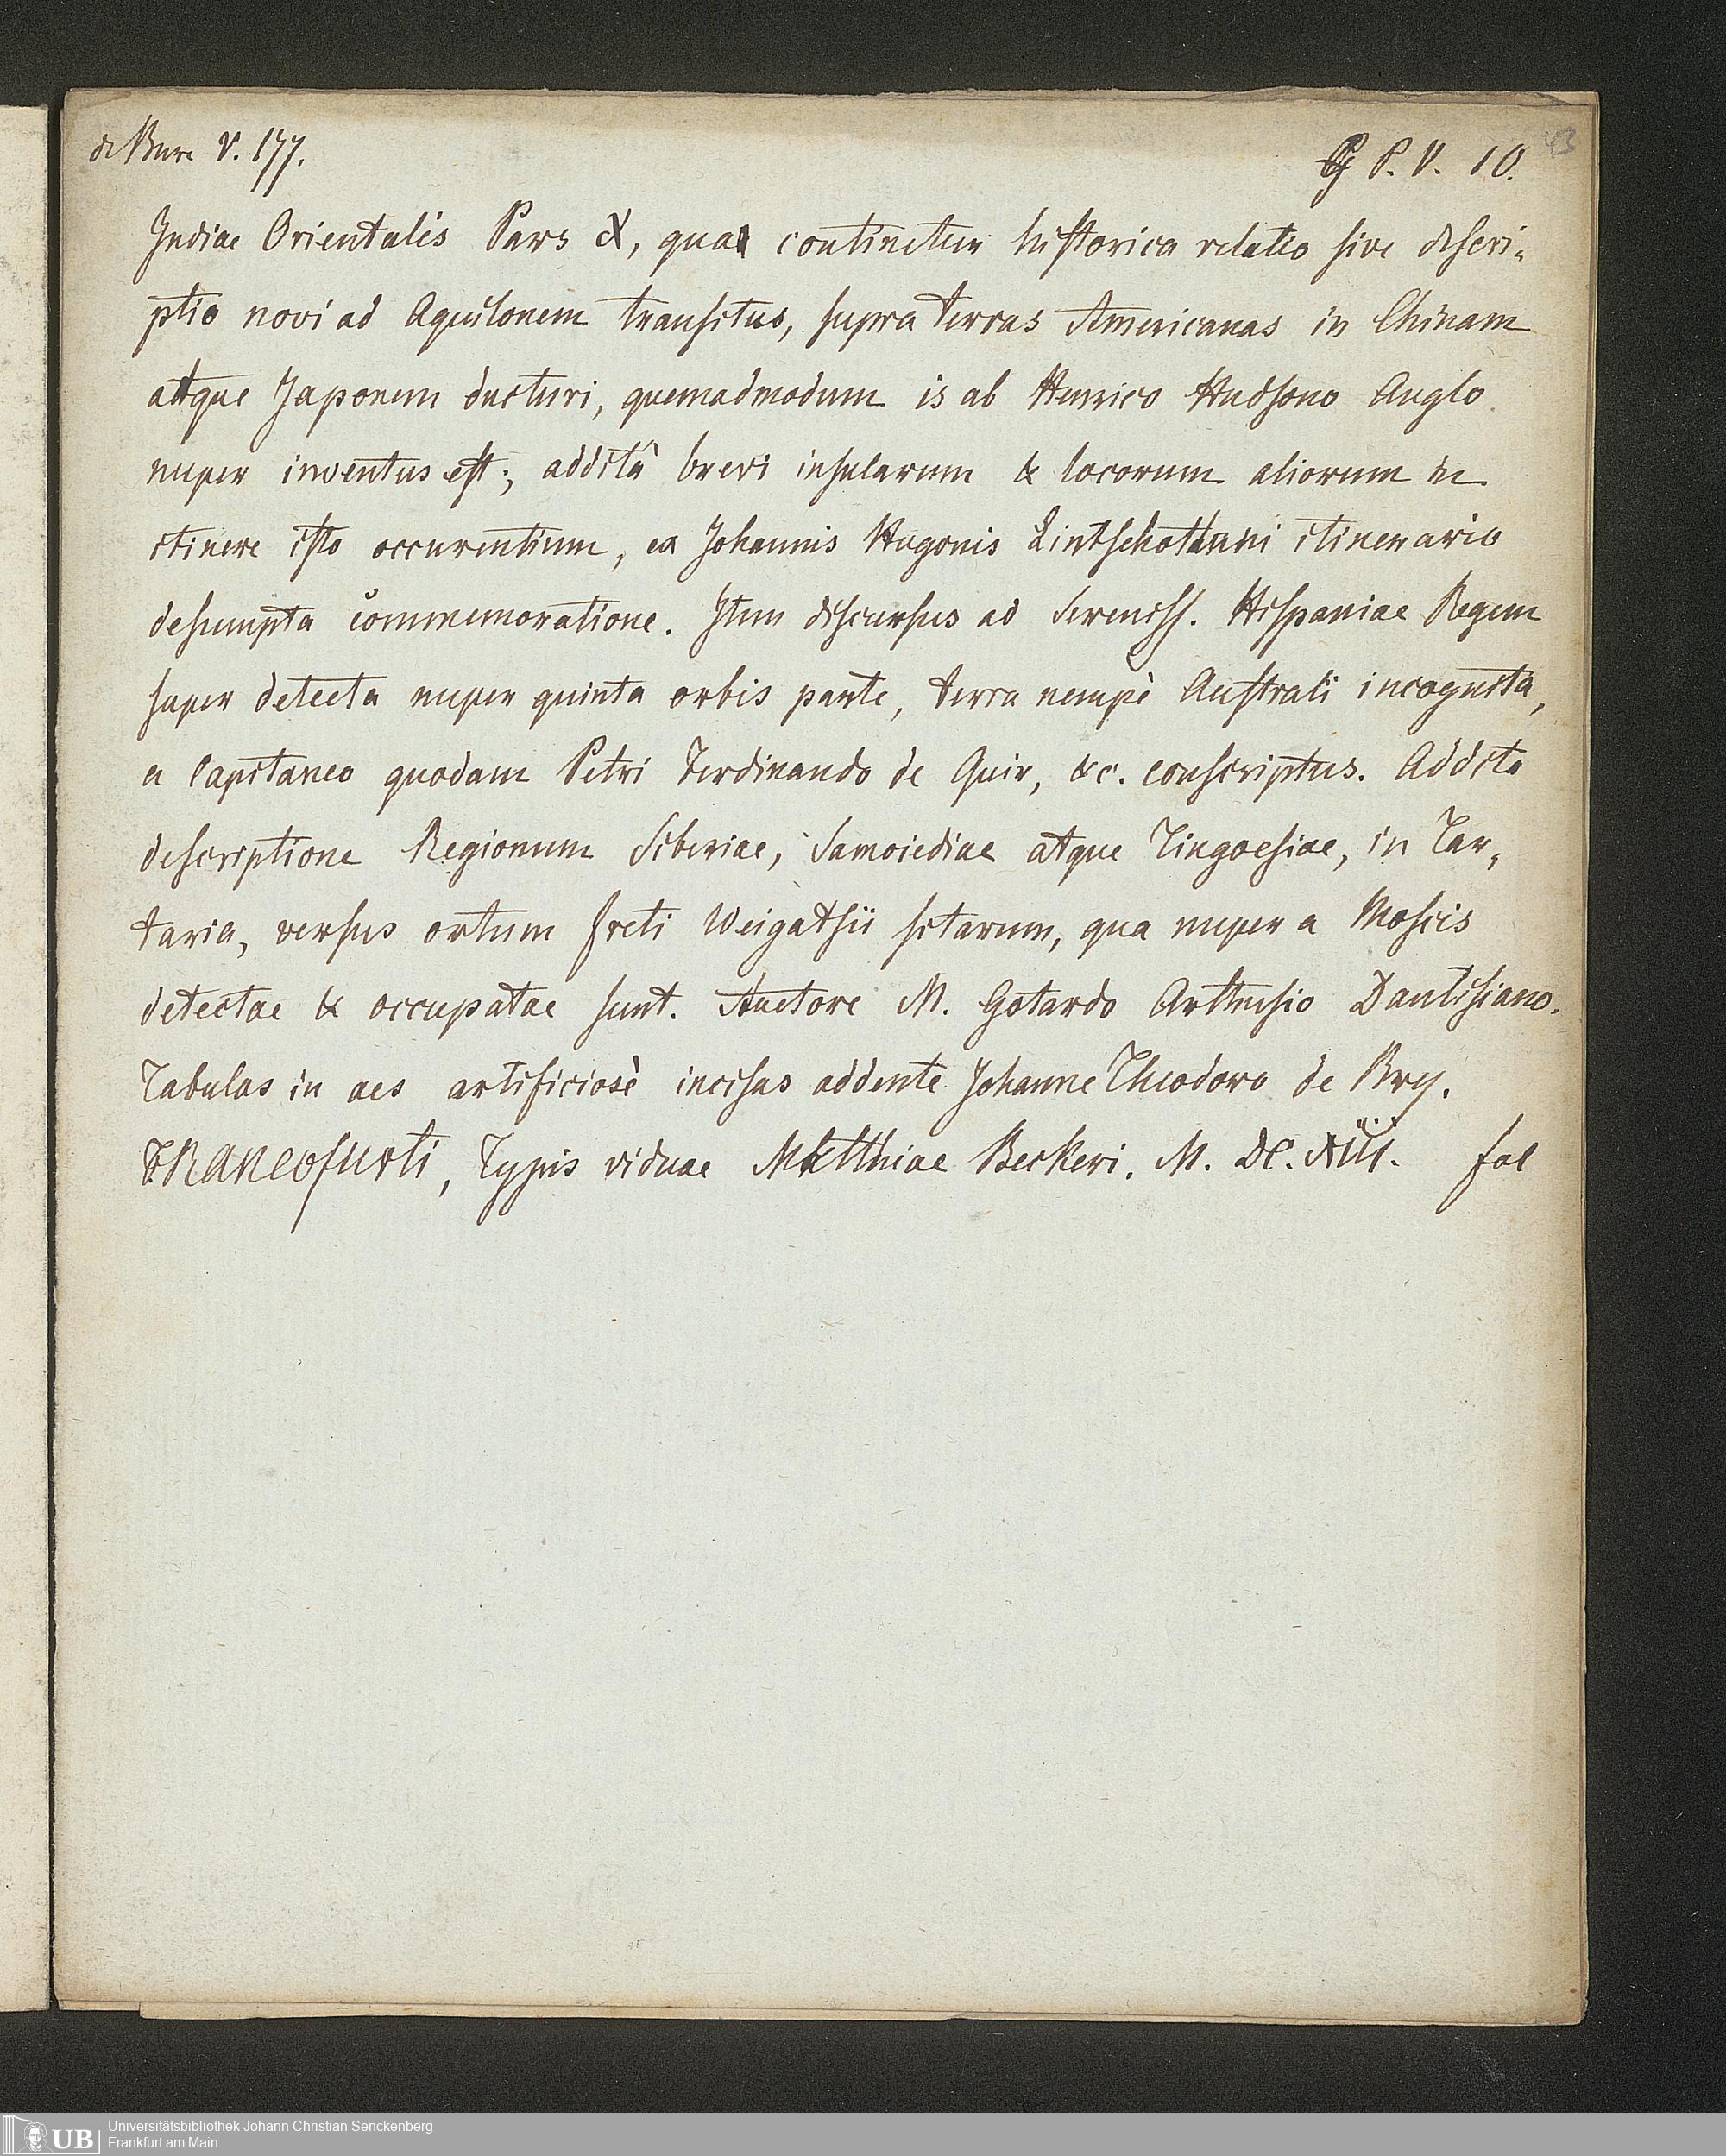 de Bure V. 177.
P. V. 10.
43
Indiae Orientalis Pars X, qua continetur historica relatio sive descri-
ptio novi ad Aquilonem transitus, supra terras Americanas in Chinam
atque Japonem ducturi, quemadmodum is ab Henrico Hudsono Anglo
nuper inventus est; addità brevi insularum & locorum aliorum in
itinere isto occurentium, ex Johannis Hugonis Lintschottani itinerario
desumpta commemoratione. Item discursus ad Sereniss. Hispaniae Regem
super detecta nuper quinta orbis parte, terra nempè Australi incognita,
a Capitaneo quodam Petri Ferdinando de Quir, &c. conscriptus. Addita
descriptione Regionum Siberiae, Samoiediae atque Tingoesiae, in Tar-
taria, versus ortum freti Weigatsii sitarum, qua nuper a Moscis
detectae & occupatae sunt. Auctore M. Gotardo Arthusio Dantisiano.
Tabulas in aes artificiosè incisas addente Johanne Theodoro de Bry.
FRANCofurti, Typis viduae Matthiae Beckeri. M. DC. XIII. fol
UB
Universitätsbibliothek Johann Christian Senckenberg
Frankfurt am Main